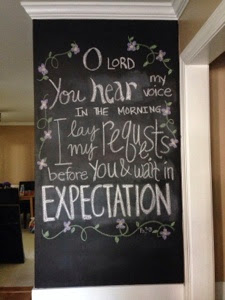 O LORD
You hear my voice
IN THE MORNING
I lay my requests
before YOU & wait in
EXPECTATION